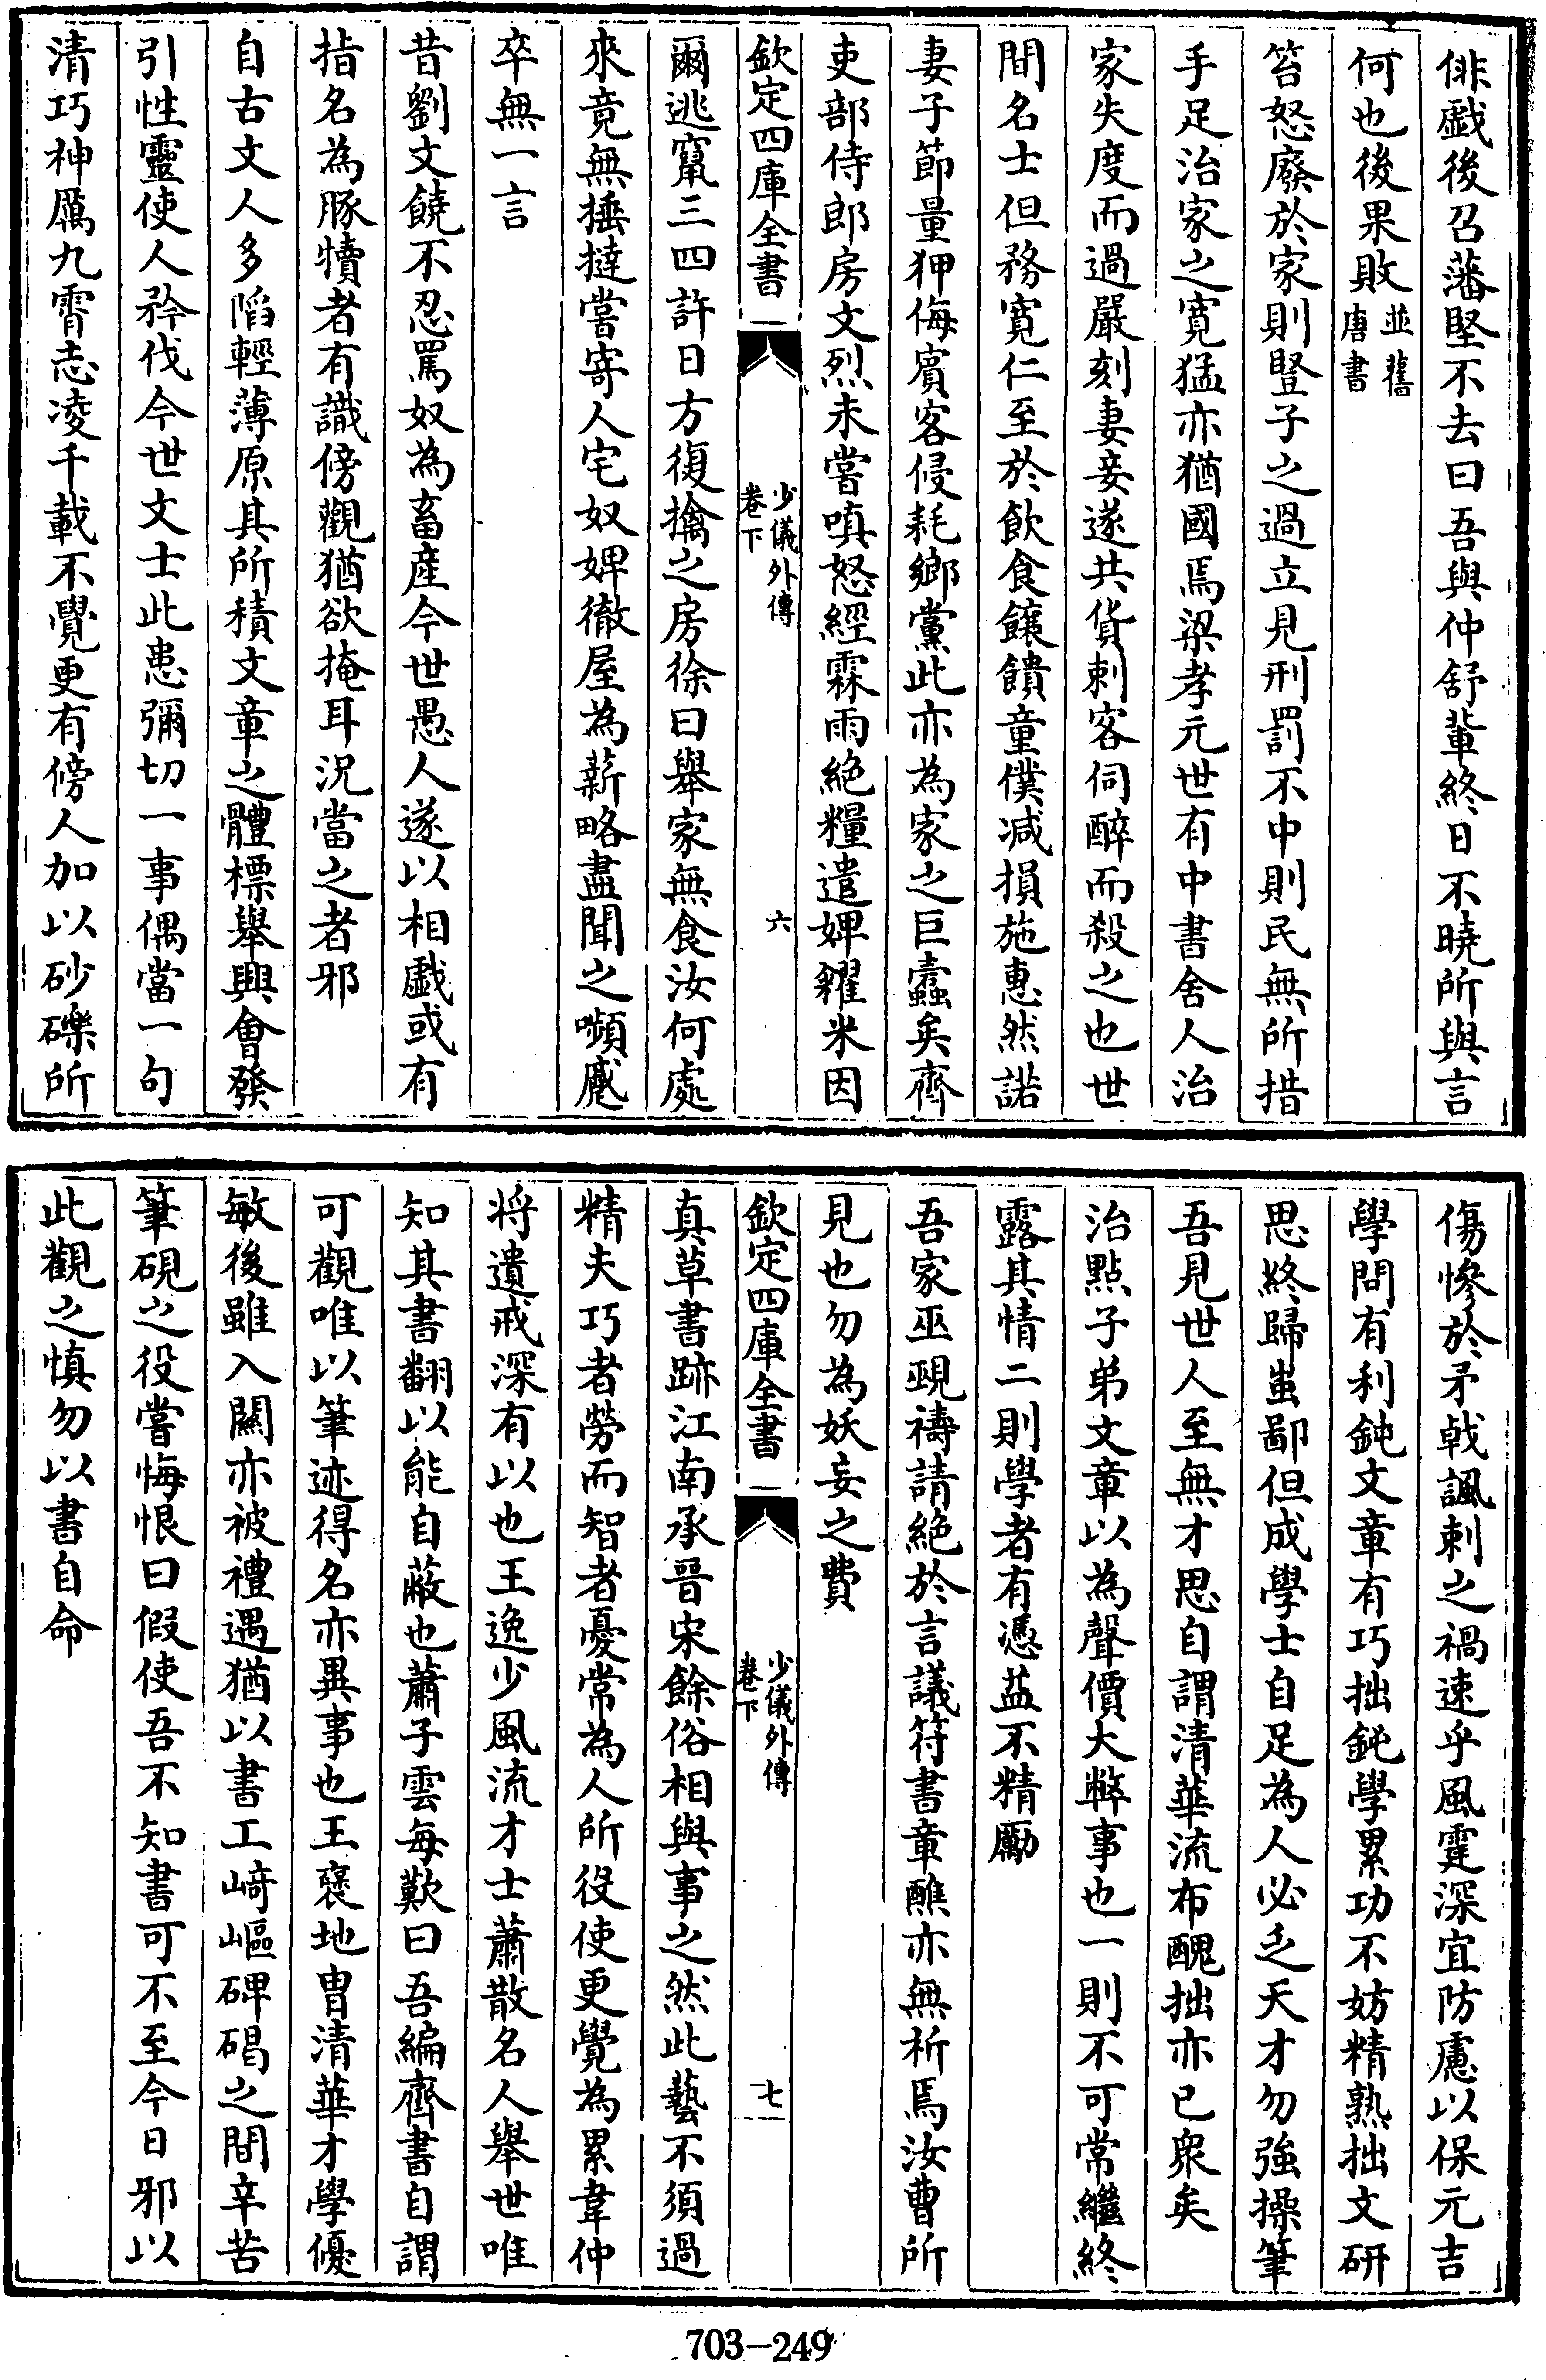 俳戯後召藩堅不去曰吾與仲舒輩終日不曉所與言
何也後果敗並舊唐書
笞怒廢於家則豎子之過立見刑罰不中則民無所措
手足治家之寛猛亦猶國焉梁孝元世有中書舍人治
家失度而過嚴刻妻妾遂共貨刺客伺醉而殺之也世
間名士但務寛仁至於飲食饟饋童僕减損施惠然諾
妻子節量狎侮賔客侵耗鄉黨此亦為家之巨蠹矣齊
吏部侍郎房文烈未嘗嗔怒經霖雨絶糧遣婢糴米因
欽定四庫全書
少儀外傳
卷下
六
爾逃竄三四許日方復擒之房徐曰舉家無食汝何處
來竟無捶撻嘗寄人宅奴婢徹屋為薪略盡聞之嚬蹙
卒無一言
昔劉文饒不忍罵奴為畜産今世愚人遂以相戯或有
指名為豚犢者有識傍觀猶欲掩耳況當之者邪
自古文人多陷輕薄原其所積文章之體標舉興會發
引性靈使人矜伐今世文士此患彌切一事偶當一句
清巧神厲九霄志凌千載不覺更有傍人加以砂礫所
傷慘於矛戟諷刺之禍速乎風霆深宜防慮以保元吉
學問有利鈍文章有巧拙鈍學累功不妨精熟拙文研
思終歸蚩鄙但成學士自足為人必乏天才勿強操筆
吾見世人至無才思自謂清華流布醜拙亦已衆矣
治點子弟文章以為聲價大弊事也一則不可常繼終
露其情二則學者有憑益不精勵
吾家巫覡禱請絶於言議符書章醮亦無祈焉汝曹所
見也勿為妖妄之費
欽定四庫全書
少儀外傳
卷下
七
真草書跡江南承晉宋餘俗相與事之然此藝不須過
精夫巧者勞而智者憂常為人所役使更覺為累韋仲
將遺戒深有以也王逸少風流才士蕭散名人舉世唯
知其書翻以能自蔽也蕭子雲每歎曰吾編齊書自謂
可觀唯以筆迹得名亦異事也王褒地胄清華才學優
敏後雖入關亦被禮遇猶以書工崎嶇碑碣之間辛苦
筆硯之役嘗悔恨曰假使吾不知書可不至今日邪以
此觀之慎勿以書自命
703-249